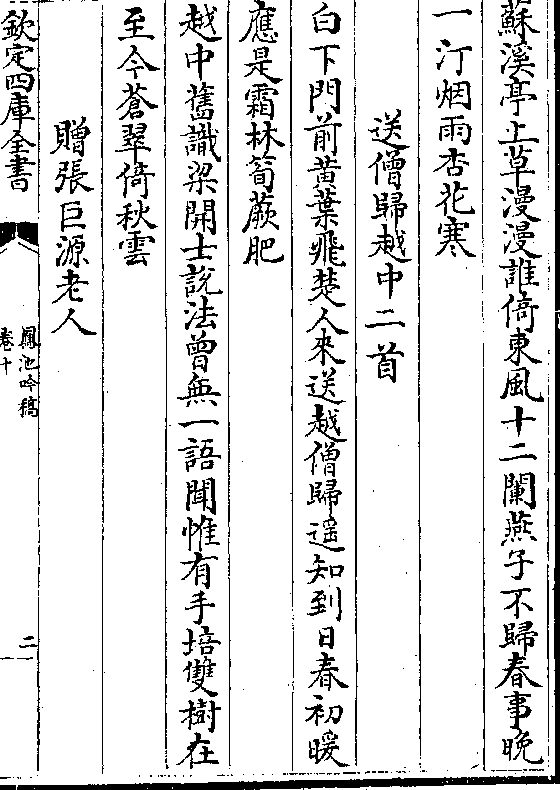 蘇溪亭上草漫漫誰倚東風十二闌燕子不歸春事晚
一汀烟雨杏花寒
送僧歸越中二首
白下門前黄葉飛楚人來送越僧歸遥知到日春初暖
應是霜林筍蕨肥
越中舊識梁開士説法曾無一語聞惟有手培雙樹在
至今蒼翠倚秋雲
贈張巨源老人
欽定四庫全書
鳳池吟稿
卷十
二